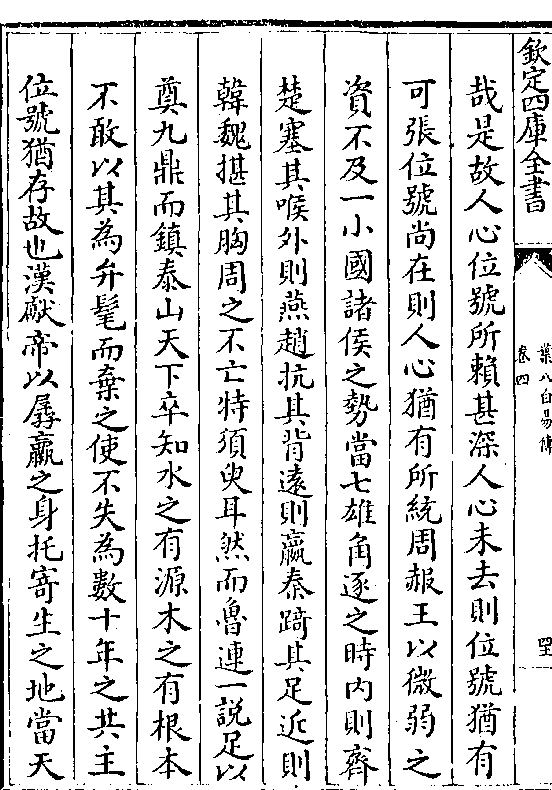 欽定四庫全書
葉八白易傳
卷四
哉是故人心位號所賴甚深人心未去則位號猶有
可張位號尚在則人心猶有所統周赧王以微弱之
資不及一小國諸侯之勢當七雄角逐之時内則齊
楚塞其喉外則燕趙抗其背逺則嬴秦踦其足近則
韓魏揕其胸周之不亡特須臾耳然而魯連一説足以
奠九鼎而鎮泰山天下卒知水之有源木之有根本
不敢以其為弁髦而棄之使不失為數十年之共主
位號猶存故也漢獻帝以孱羸之身托寄生之地當天